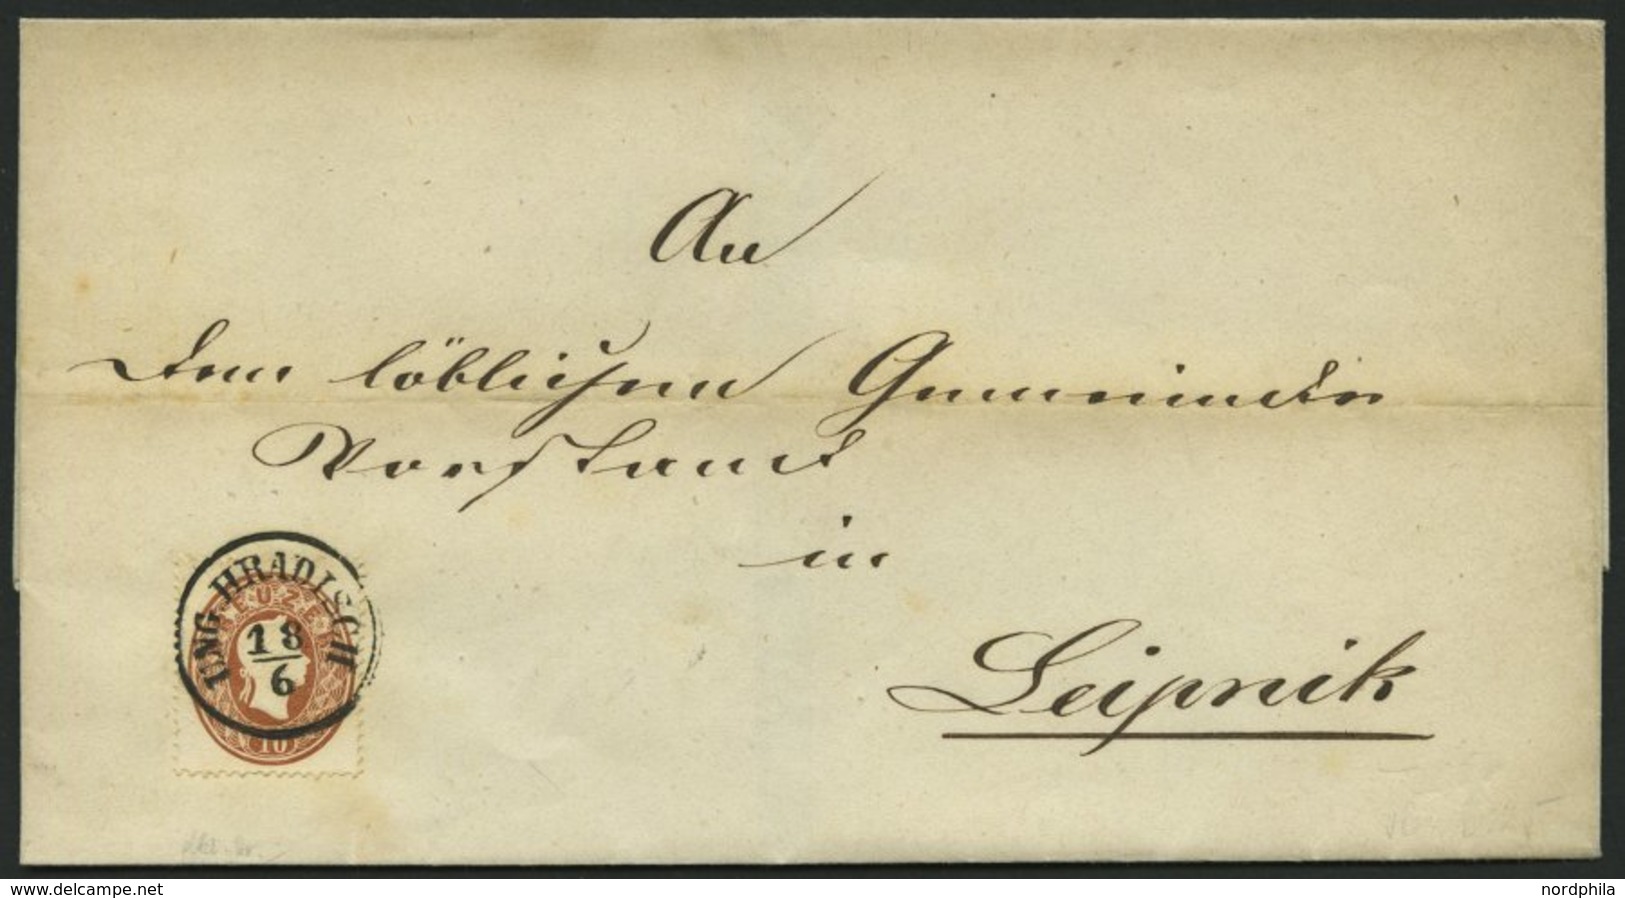 An
dem löblichen Gemeinde
Vorstand
in
Leipnik
UNG. HRADISCH
KREUZER
18
6
10
www.delcampe.net
nordphila